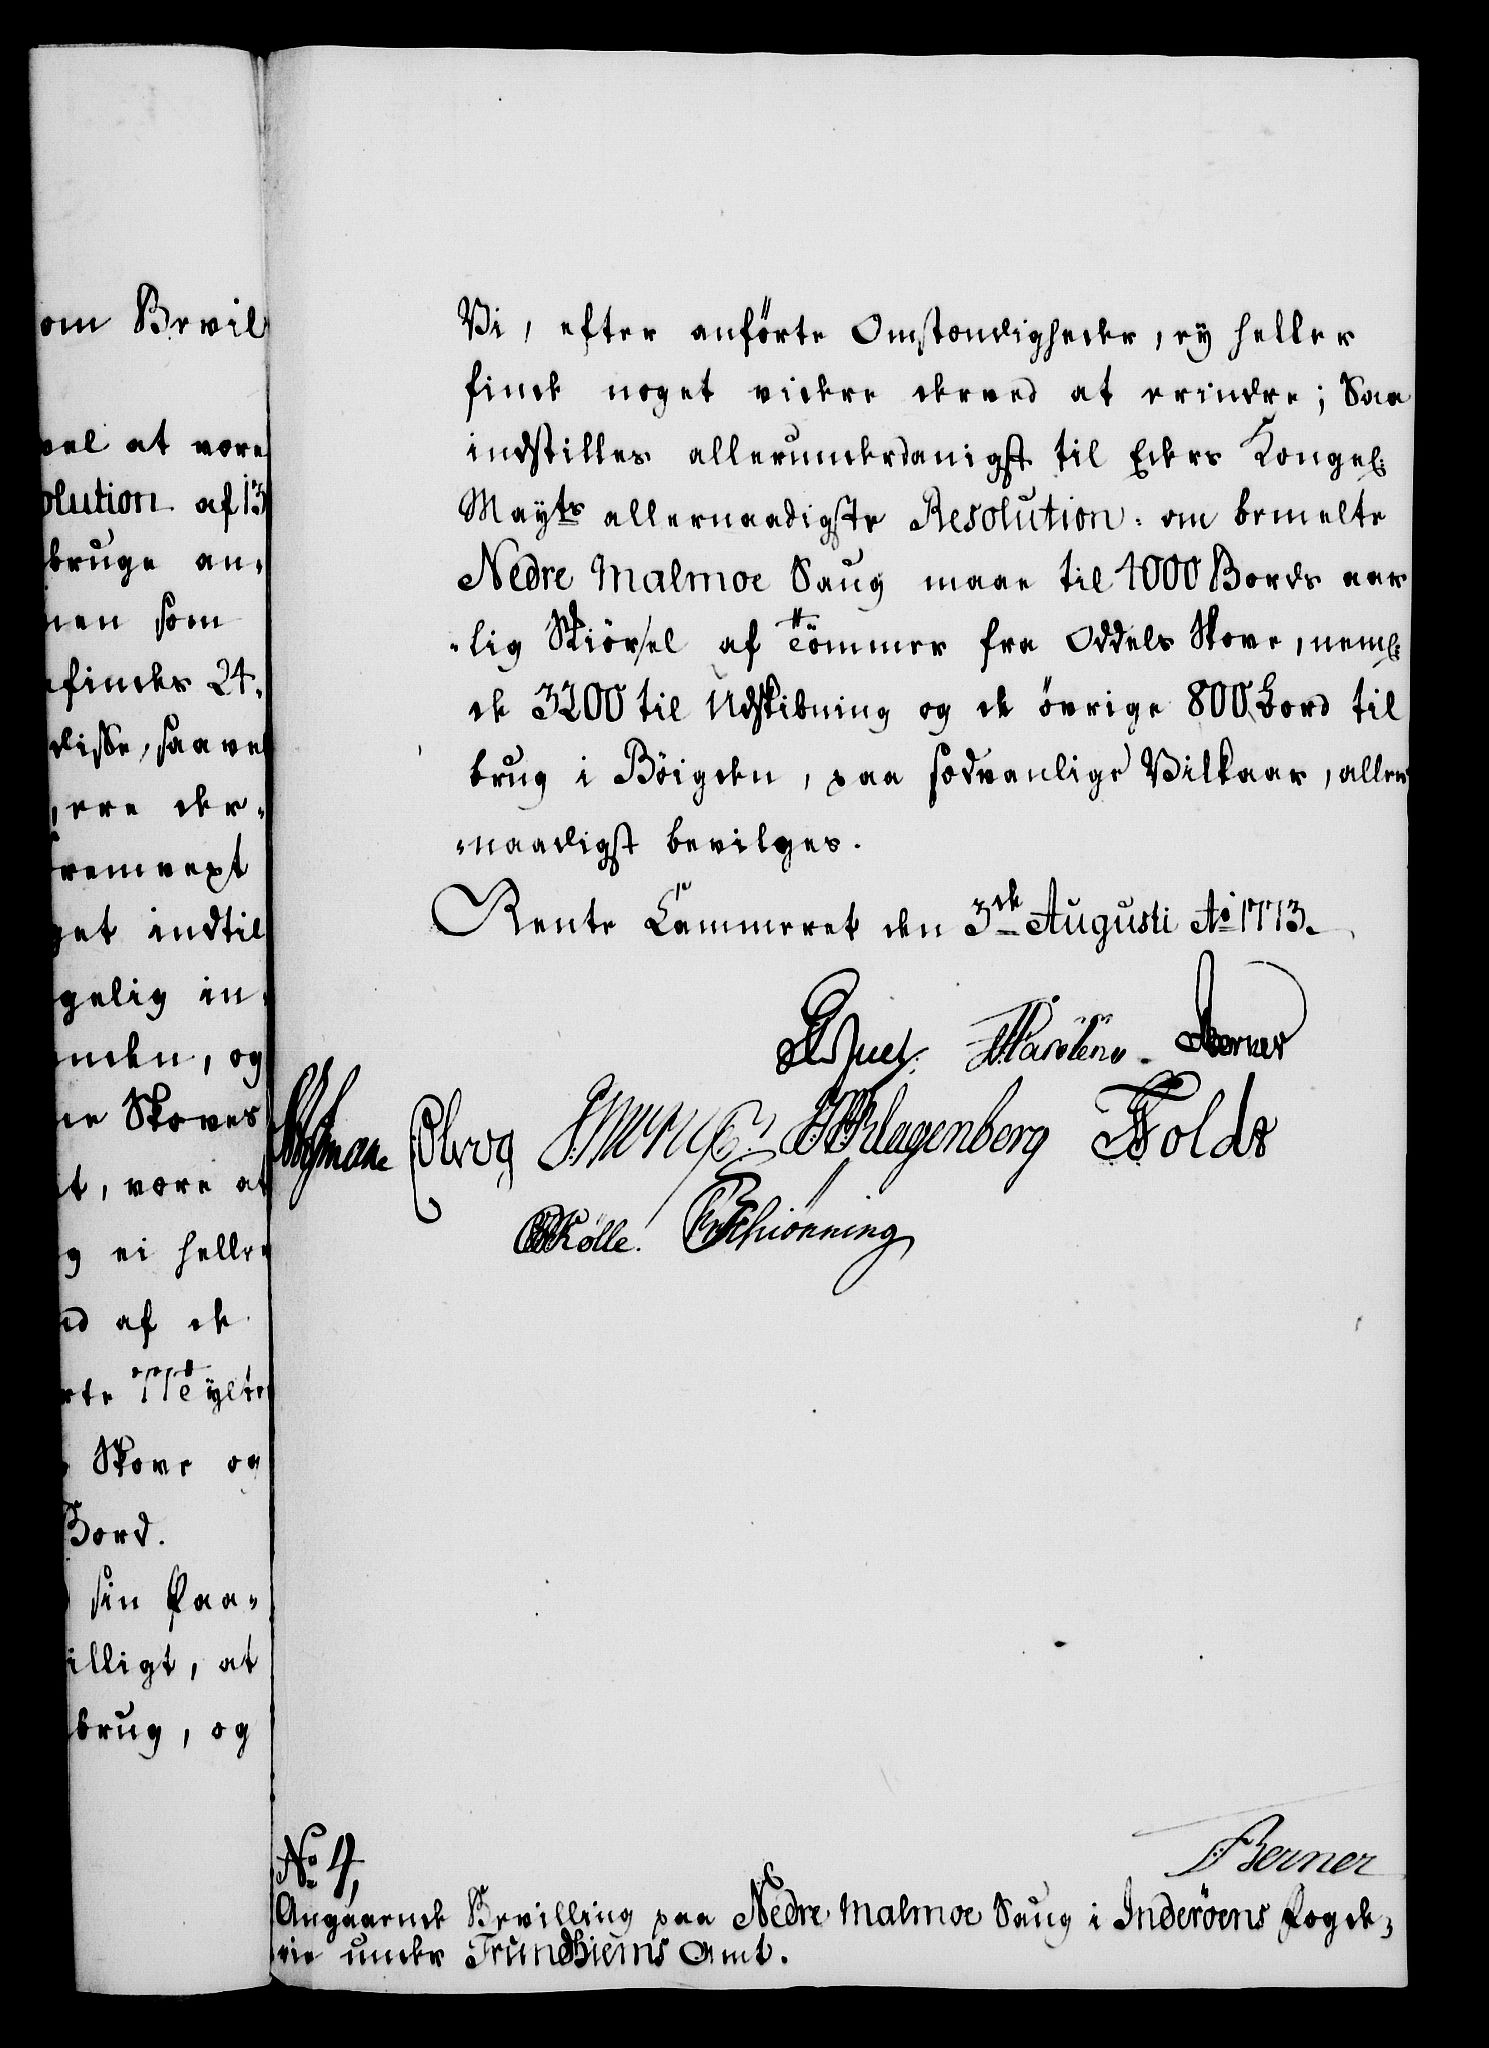 om Bevil
vel at være
olution af 13
bruge an-
men som
efindes 24.
disse, saavel
ere der-
fremvext
get indtil
gelig in-
nden, og
er Skoves
t, være at
g ei heller
ed af de
rte
Skove og
Bord.
sin Paa-
illigt, at
brug, og
Vi, efter anførte Omstændigheder, ey heller
finde noget videre derved at erindre; Saa
indstilles allerunderdanigst til Eders Kongel:
Mayts allernaadigste Resolution: om bemelte
Nedre Malmoe Saug maae til 4000 Bords aar
-lig Skiørsel af Tömmer fra Oddels Skove, neml:
de 3200 til Udskibning og de övrige 800 Bord til
brug i Böigden, paa sædvanlige Vilkaar, aller
-naadigst bevilges.
Rente Cammeret den 3de Augusti Ao 1773.
Berner
Schlagenberg Foldt
Kölle. Schiönning
No 4,
Berner
Angaaende Bevilling paa Nedre Malmoe Saug i Inderöens Fogde-
rie under Trundhiems Amt.